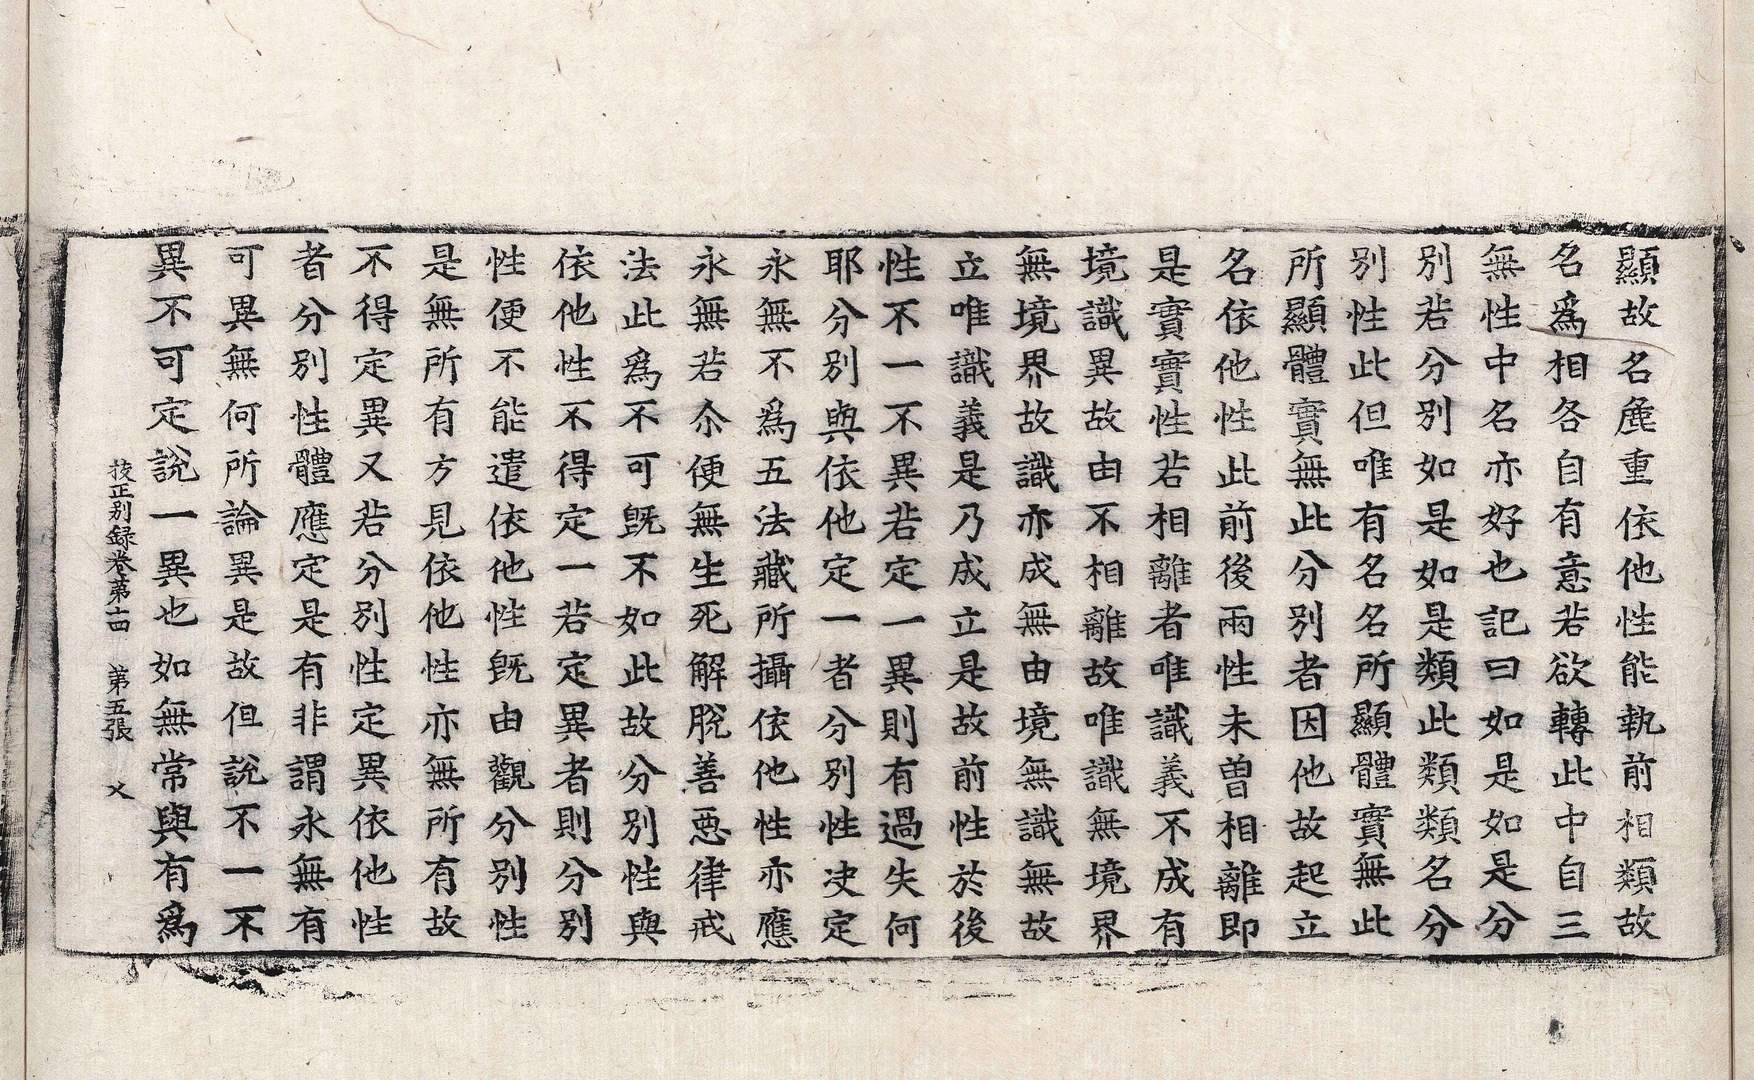 顯故名麁重依他性能執前相類故
名爲相各自有意若欲轉此中自三
無性中名亦好也記曰如是如是分
別若分別如是如是類此類類名分
別性此但唯有名名所顯體實無此
所顯體實無此分別者因他故起立
名依他性此前後兩性未曽相離即
是實實性若相離者唯識義不成有
境識異故由不相離故唯識無境界
無境界故識亦成無由境無識無故
立唯識義是乃成立是故前性於後
性不一不異若定一異則有過失何
耶分別與依他定一者分別性決定
永無不爲五法藏所攝依他性亦應
永無若尒便無生死解脫善惡律戒
法此爲不可旣不如此故分別性與
依他性不得定一若定異者則分別
性便不能遣依他性旣由觀分別性
是無所有方見依他性亦無所有故
不得定異又若分別性定異依他性
者分別性體應定是有非謂永無有
可異無何所論異是故但說不一不
異不可定說一異也如無常與有爲
挍正别録卷第十四 第五張 父